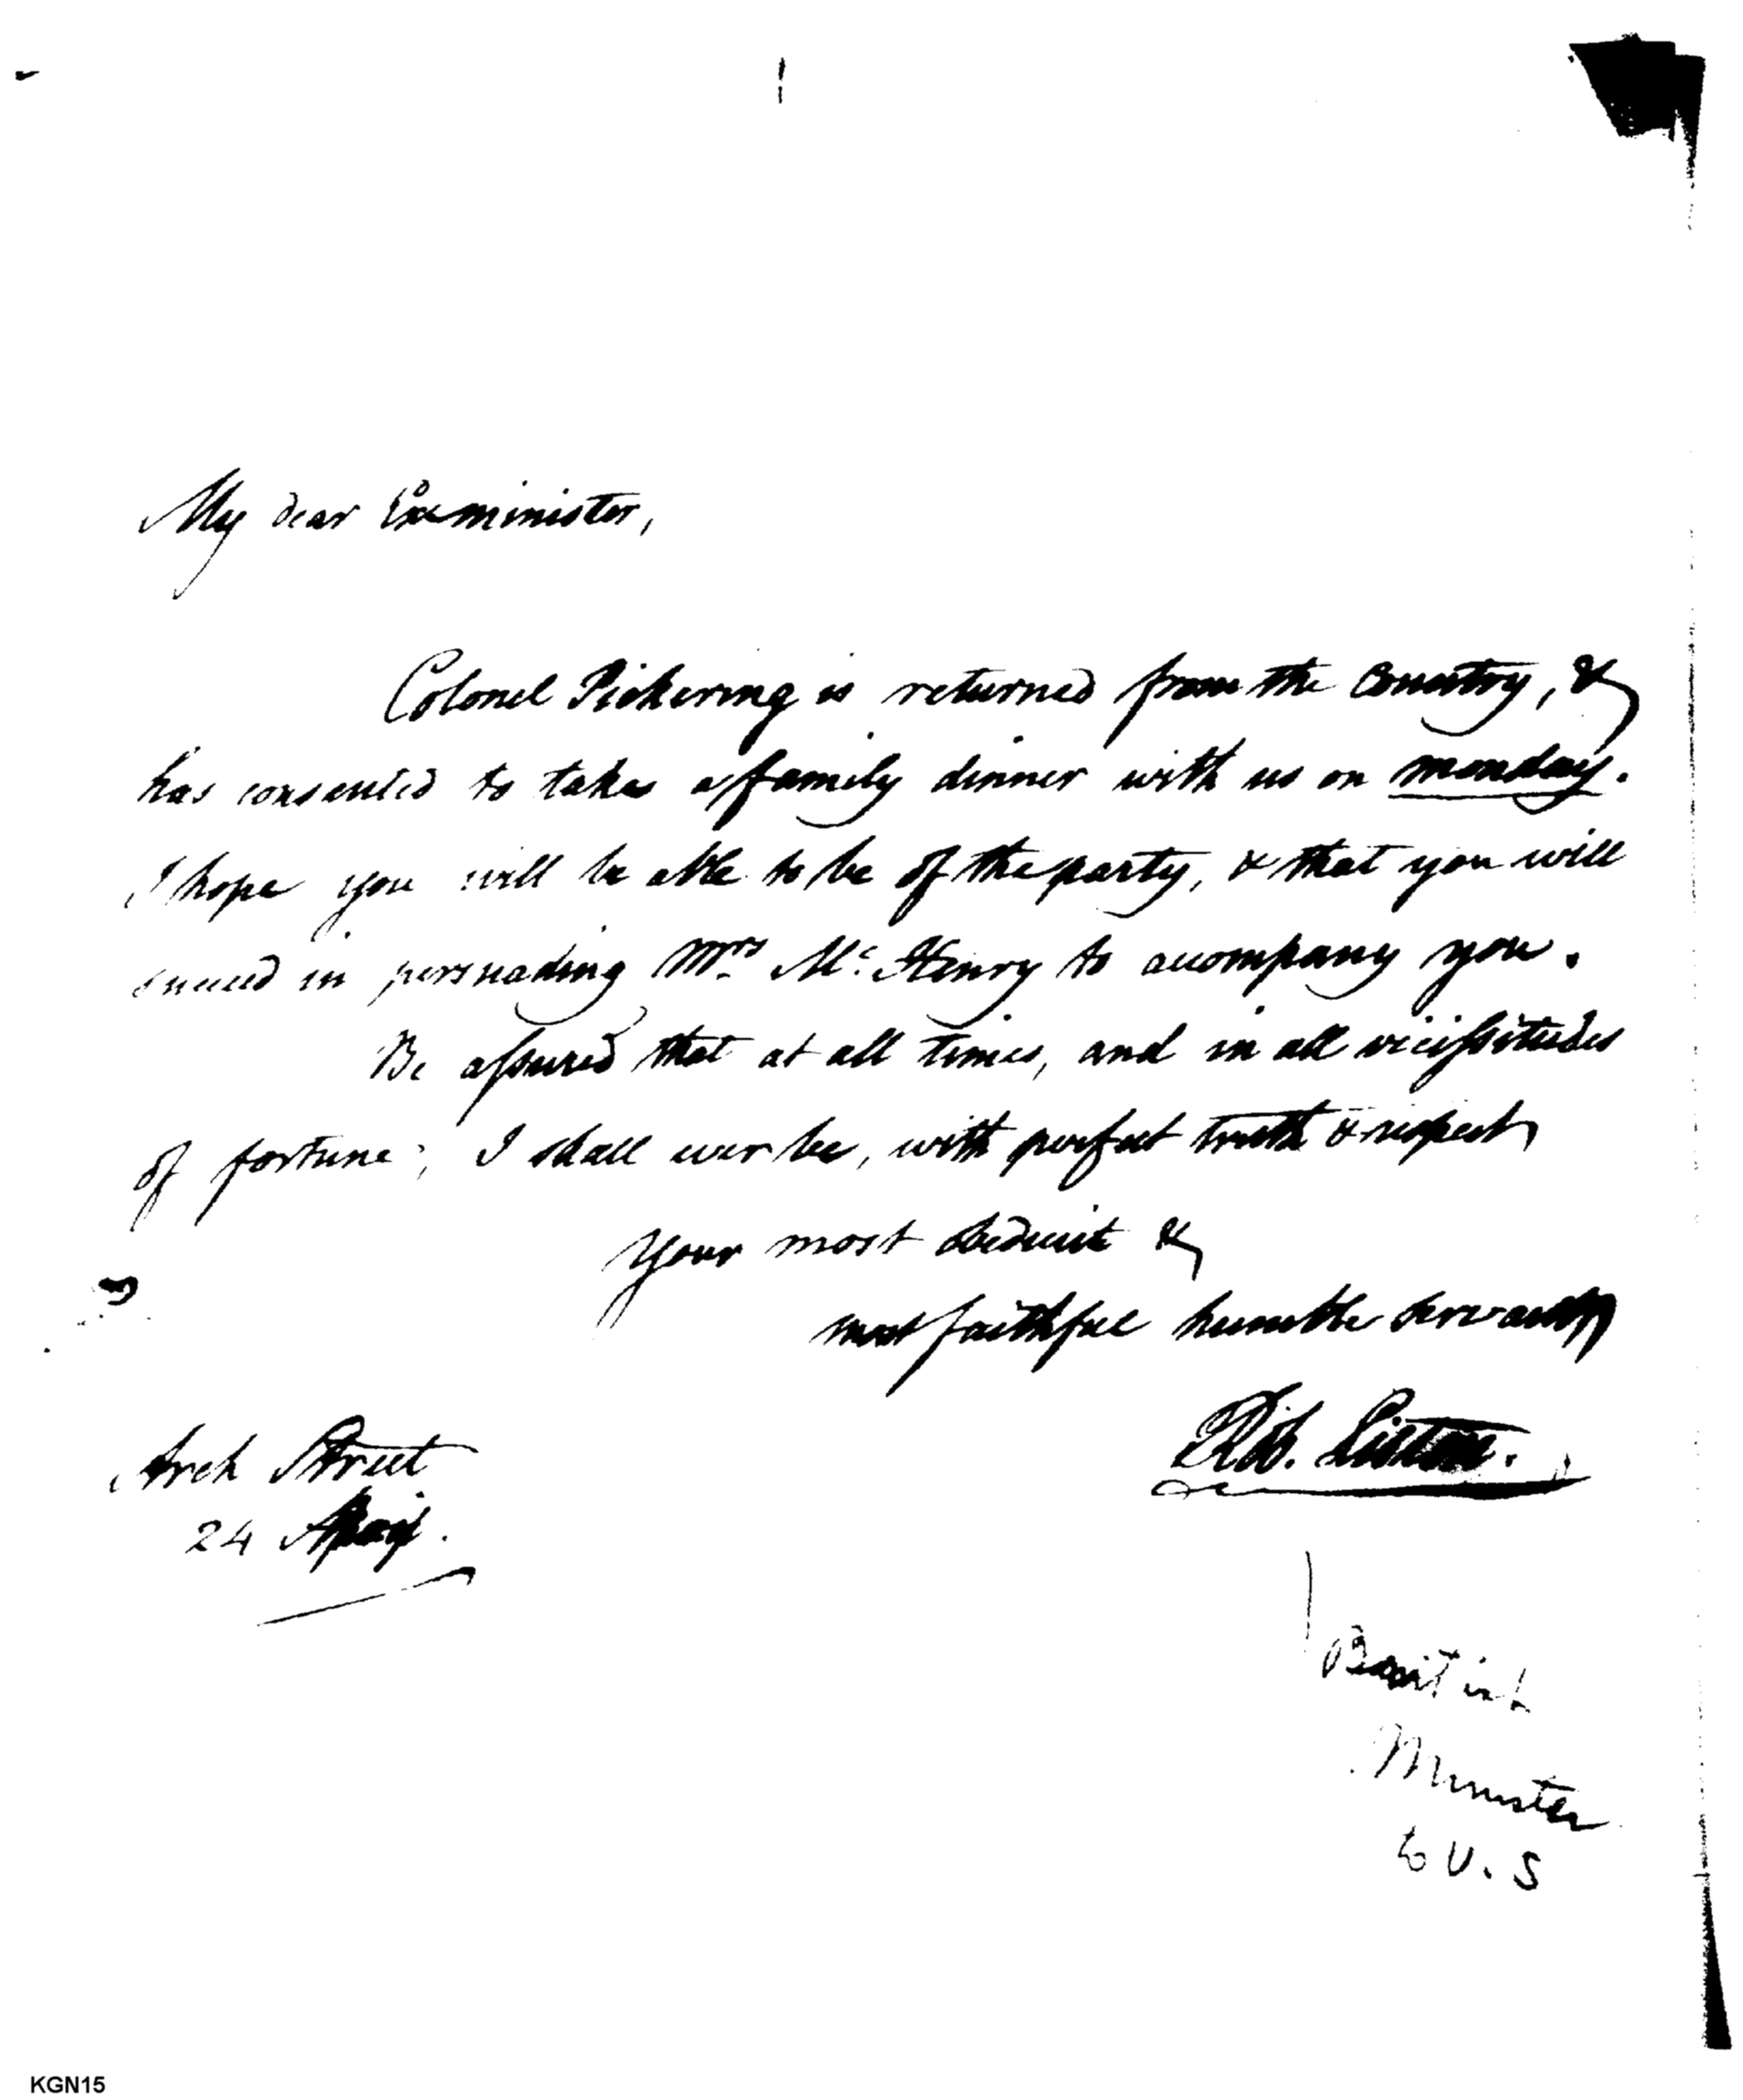 My dear Exminister,
Colonel Pickering is returned from the Country, &
has consented to take a family dinner with us on monday.
I hope you will be able to be of the party, & that you will
succeed in persuading Mrs. Mc. Henry to accompany you.
Be assured that at all times, and in all vicissitudes
of fortune, I shall ever be, with perfect truth & respect,
Your most obedient &
most faithful humble servant
Rob. Liston.
Arch Street
24
British
Minister
to U.S
KGN15